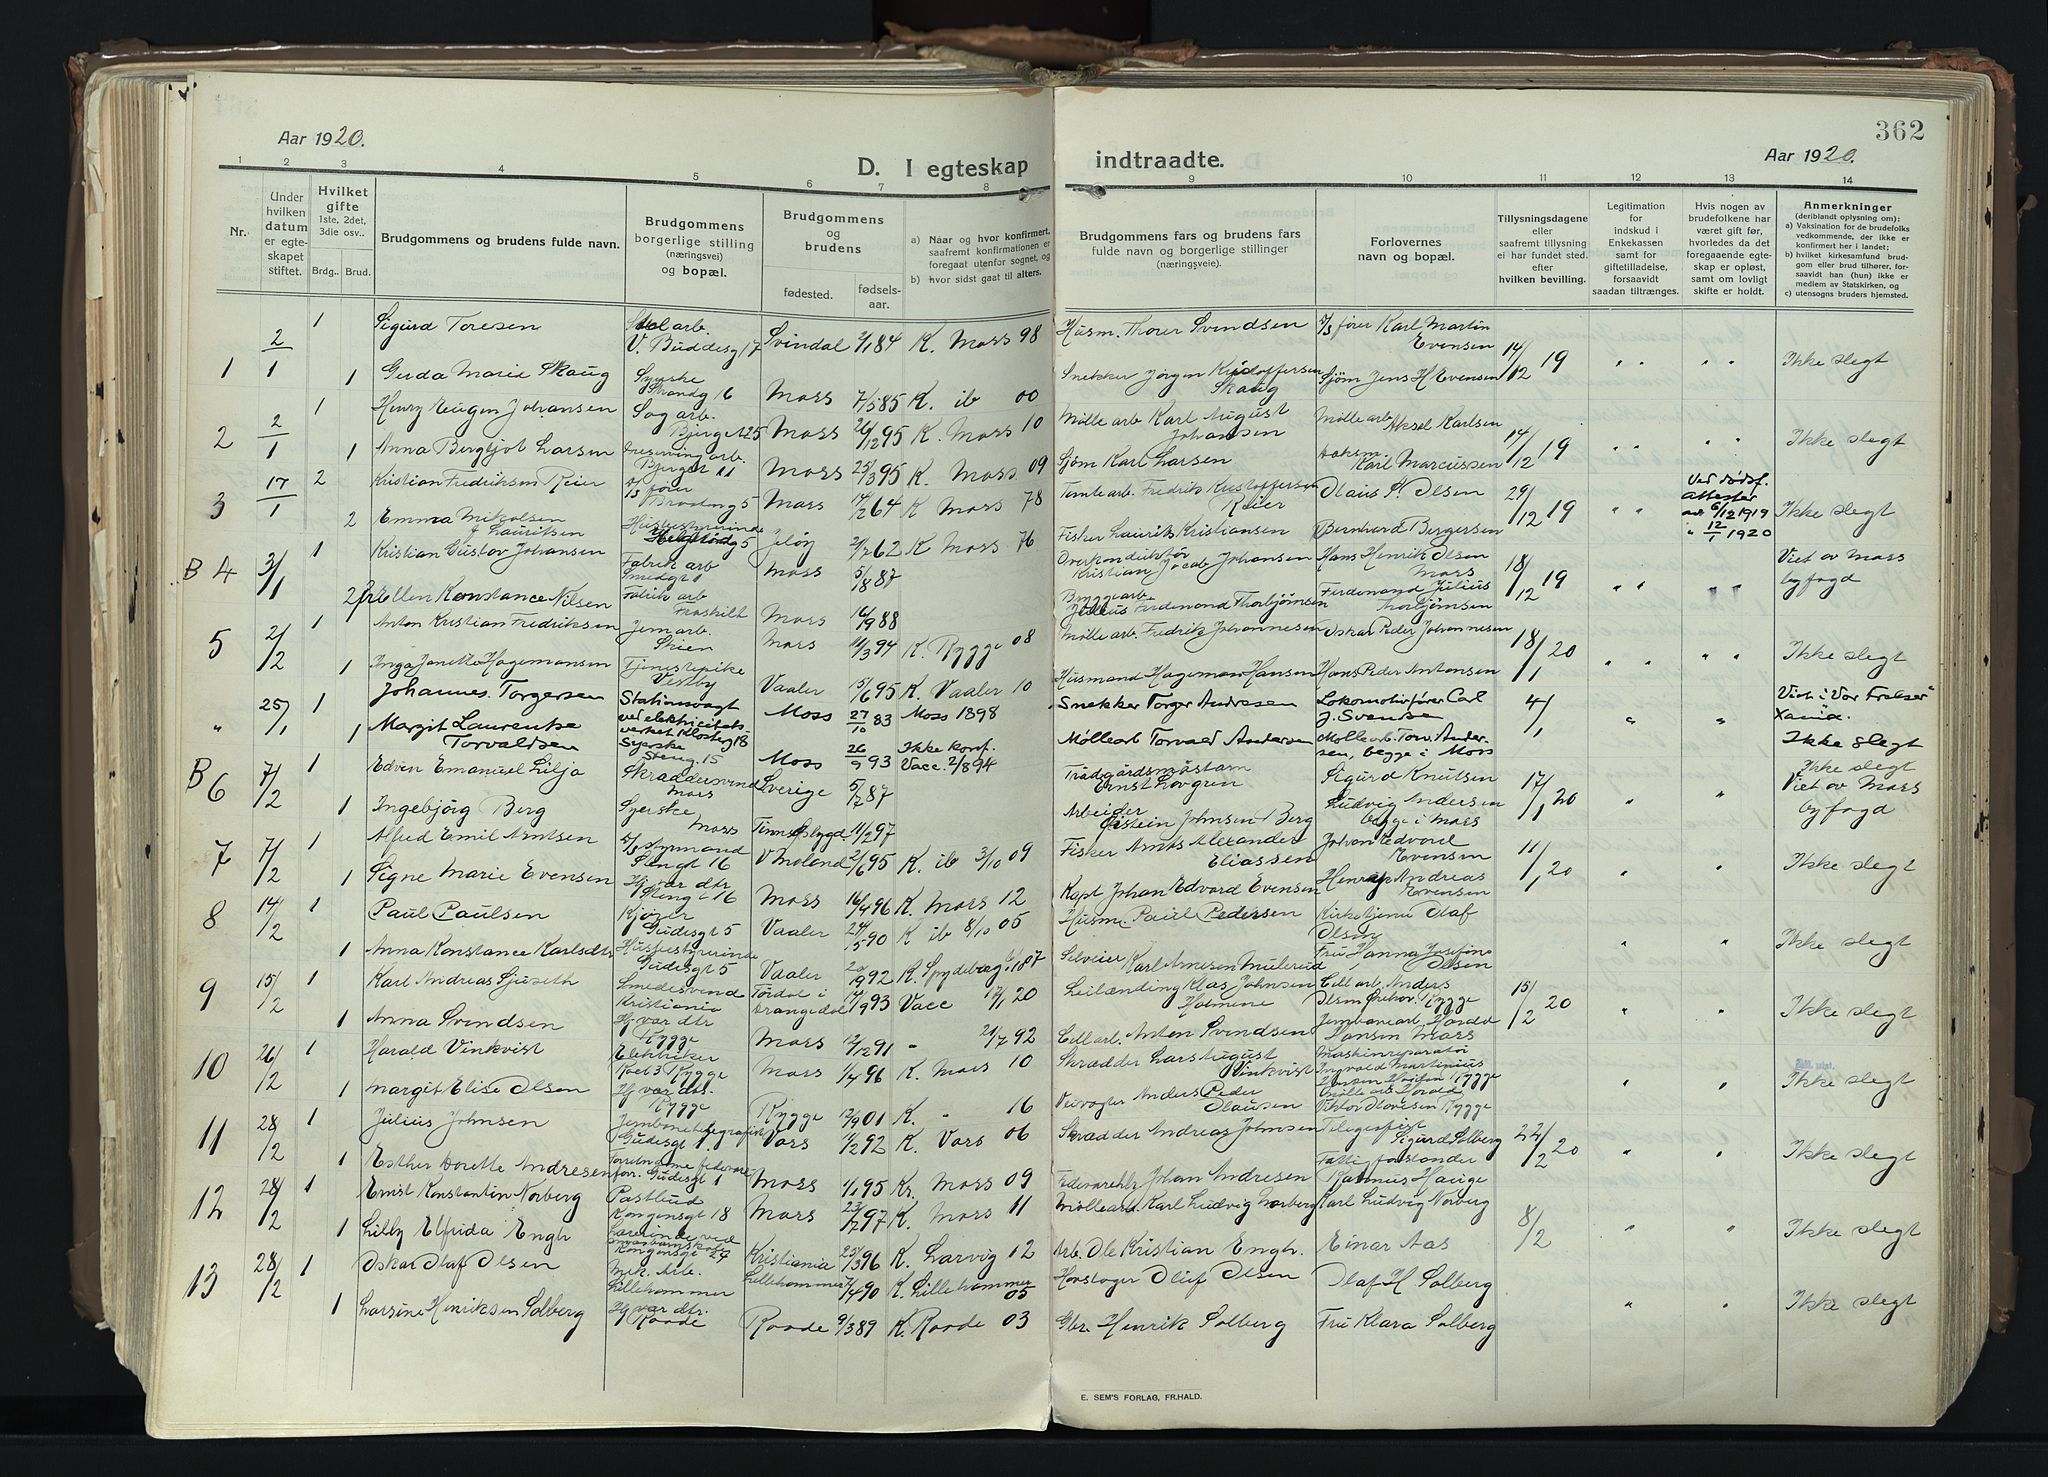 Aar 1920.
D. I egteskap
indtraadte.
Aar 1920.
362
1 2 3 4 5 6 7 8 9 10 11 12 13 14
Nr.
Under hvilken datum er egteskapet stiftet.
Hvilket gifte 1ste, 2det, 3die osv..
Brdg.. Brud.
Brudgommens og brudens fulde navn.
Brudgommens borgerlige stilling (næringsvei) og bopæl.
Brudgommens og brudens
fødested.
fødsels-aar.
a) Naar og hvor konfirmert, saafremt konfirmationen er foregaat utenfor sognet, og
b) hvor sidst gaat til alters.
Brudgommens fars og brudens fars fulde navn og borgerlige stillinger (næringsveie).
Forlovernes navn og bopæl.
Tillysningsdagene eller saafremt tillysning ei har fundet sted. efter hvilken bevilling.
Legitimation for indskud i Enkekassen samt for giftetilladelse, forsaavidt saadan tiltrænges.
Hvis nogen av brudefolkene har været gift før, hvorledes da det foregaaende egteskap er opløst, samt om lovligt skifte er holdt.
Anmerkninger (deriblandt oplysning om):
a) Vaksination for de brudefolks vedkommende, der ikke er konfirmert her i landet;
b) hvilket kirkesamfund brudgom eller brud tilhører, forsaavidt han (hun) ikke er medlem av Statskirken, og
c) utensogns bruders hjemsted.
1 2/1 1 Sigurd Toresen V. Buddesg 17 Svindal 2/1 84 K. Moss 98 Husm. Thorer Svendsen Karl Martin Evensen 14/12 19 " " " Ikke slegt
1 Gerda Marie Skaug Syerske Strandg 6 Moss 7/5 85 K. ib 00 Snekker Jørgen Kristoffersen Skaug Sjøm Jens H Evensen
2 2/1 1 Henry Eugen Johansen Sag arb. Bjerget 25 Moss 26/12 95 K. Moss 10 Mølle arb Karl August Johansen Mølle arb Aksel Karlsen 14/12 19 Ikke slegt
1 Anna Bergljot Larsen Bjerget 11 Moss 25/3 95 K. Moss 09 Sjøm Karl Larsen Karl Marcussen
3 17/1 2 Kristian Fredriksen Reier Moss 14/2 64 K Moss 78 Tomte arb. Fredrik Kristoffersen Reier Olaus P. Olsen 29/12 19 Ved dødsf. attester av 6/12 1919 " 12/1 1920 Ikke slegt
2 Emma Mikalsen f. Lauritsen Husbestyrerinde Jeløy 21/7 62 K Moss 76 Fisker Laurits Kristiansen Bernhard Bergersen
B 4 3/1 1 Kristian Gustav Johansen Fabrik arb Smedgt 1 Moss 5/8 87 Overkonduktør Kristian Jacob Johansen Hans Henrik Olsen Moss 18/12 19 Viet av Moss byfogd
2 fr Ellen Konstance Nilsen Fabrik arb Fraskilt Moss 16/9 88 Byggearb. Julius Ferdinand Thorbjørnsen Ferdinand Julius Thorbjørnsen
5 2/2 1 Anton Kristian Fredriksen Jern arb. Skien Moss 11/3 94 K. Rygge 08 Mølle arb. Fredrik Johannesen Oskar Peder Johannesen 18/1 20 Ikke slegt
1 Inga Janette Hagemansen Tjenestepike Vestby Vaaler 15/6 95 K. Vaaler 10 Husmand Hageman Hansen Hans Peder Antonsen
" 25/1 1 Johannes Torgersen Stationsvagt ved elektricitets-verket Klosterg 18 Moss 27/10 83 Moss 1898 Snekker Torger Andresen Lokomotivfører Carl J. Svendsen 4/1 Viet i "Vor Frelser" Xania. Ikke slegt
1 Margit Laurentze Torvaldsen Syerske Steng. 15 Moss 26/9 93 Ikke konf. Vacc. 2/8 94 Møllearb Torvald Andersen Møllearb. Torv. Andersen, begge i Moss
B 6 7/2 1 Edvin Emanuel Lilja Skræddersvend Moss Sverige 5/7 87 Trädgårdsmästarn Ernst Lövgren Sigurd Knutsen 17/1 20 Ikke slegt Viet av Moss byfogd
1 Ingebjörg Berg Syerske Moss 11/2 97 Arbeider Eistein Johnsen Berg Ludvig Andersen begge i Moss
7 7/2 1 Alfred Emil Arntsen Stengt 16 V Moland 2/6 95 K. ib 3/10 09 Fisker Arnts Alexander Eliassen Johan Edvard Evensen 11/1 20 Ikke slegt
1 Signe Marie Evensen Hj vær dtr Stengt 16 Moss 16/4 96 K. Moss 12 Kapt Johan Edvard Evensen Henrik Andreas Evensen
8 14/2 1 Paul Paulsen Gudesgt 5 Vaaler 24/5 90 K ib 8/10 05 Husm. Paul Pedersen Kirketjener Olaf Olsen Ikke slegt
1 Anna Konstance Karlsdtr Husbestyrerinde Gudesgt 5 Vaaler 20/9 92 K. Spydeberg Selveier Karl Arnesen Mulerud Fru Hanna Josefine Olsen
9 15/2 1 Karl Andreas Ljuseth Smedesvend Kristiania Tørdal i Drangedal 14/9 93 Vacc 12/1 20 Leilænding Klas Johnsen Holmene Cell arb. Anders Olsen Rygge 15/2 20 Ikke slegt
1 Anna Svendsen Hj vær dtr Rygge Moss 12/12 91 " 21/7 92 Cell arb. Anton Svendsen Jernbanearb. Hansen Moss
10 26/2 1 Harald Vinkvist Elektriker Rygge Moss 1/4 96 K. Moss 10 Skrædder Lars August Vinkvist Maskinreparatør Ingvald Martinius Hansen Rygge Ikke slegt
1 Margit Elise Olsen Hj vær dtr. Rygge Rygge 12/9 01 K. " 16 Veivogter Anders Peder Olausen Viktor Rygge
11 28/2 1 Julius Johnsen Jernbanetelegrafist Gudesgt 1. Vars 11/2 92 K. Vars 06 Skrædder Andreas Johnsen Telegrafist Sigurd Solberg 22/2 20 Ikke slegt
1 Esther Dorette Andresen Gudesgt 1 Moss 1/1 95 K. Moss 09 Johan Andresen Fattigforstander Rasmus Hauge
12 28/2 1 Ernst Konstantin Norberg Postbud Kongensgt 18 Moss 23/7 97 K. Moss 11 Møllearb. Karl Ludvig Norberg Karl Ludvig Norberg 8/2 Ikke slegt
1 Lilly Elfrida Engh Lærerinde ved Kongensgt 24 Kristiania 25/3 96 K. Larvig 12 Arb. Ole Kristian Engh. Einar Aas
13 28/2 1 Oskar Olaf Olsen Mek. Arb. Lillehammer Lillehammer 7/4 90 K. Lillehammer 05 Oluf Olsen Olaf H Solberg Ikke slegt
1 Larsine Henriksen Solberg Hj vær dtr. Raade Raade 9/3 89 K. Raade 03 Gbr. Henrik Solberg Fru Klara Solberg
E. SEM'S FORLAG, FR.HALD.